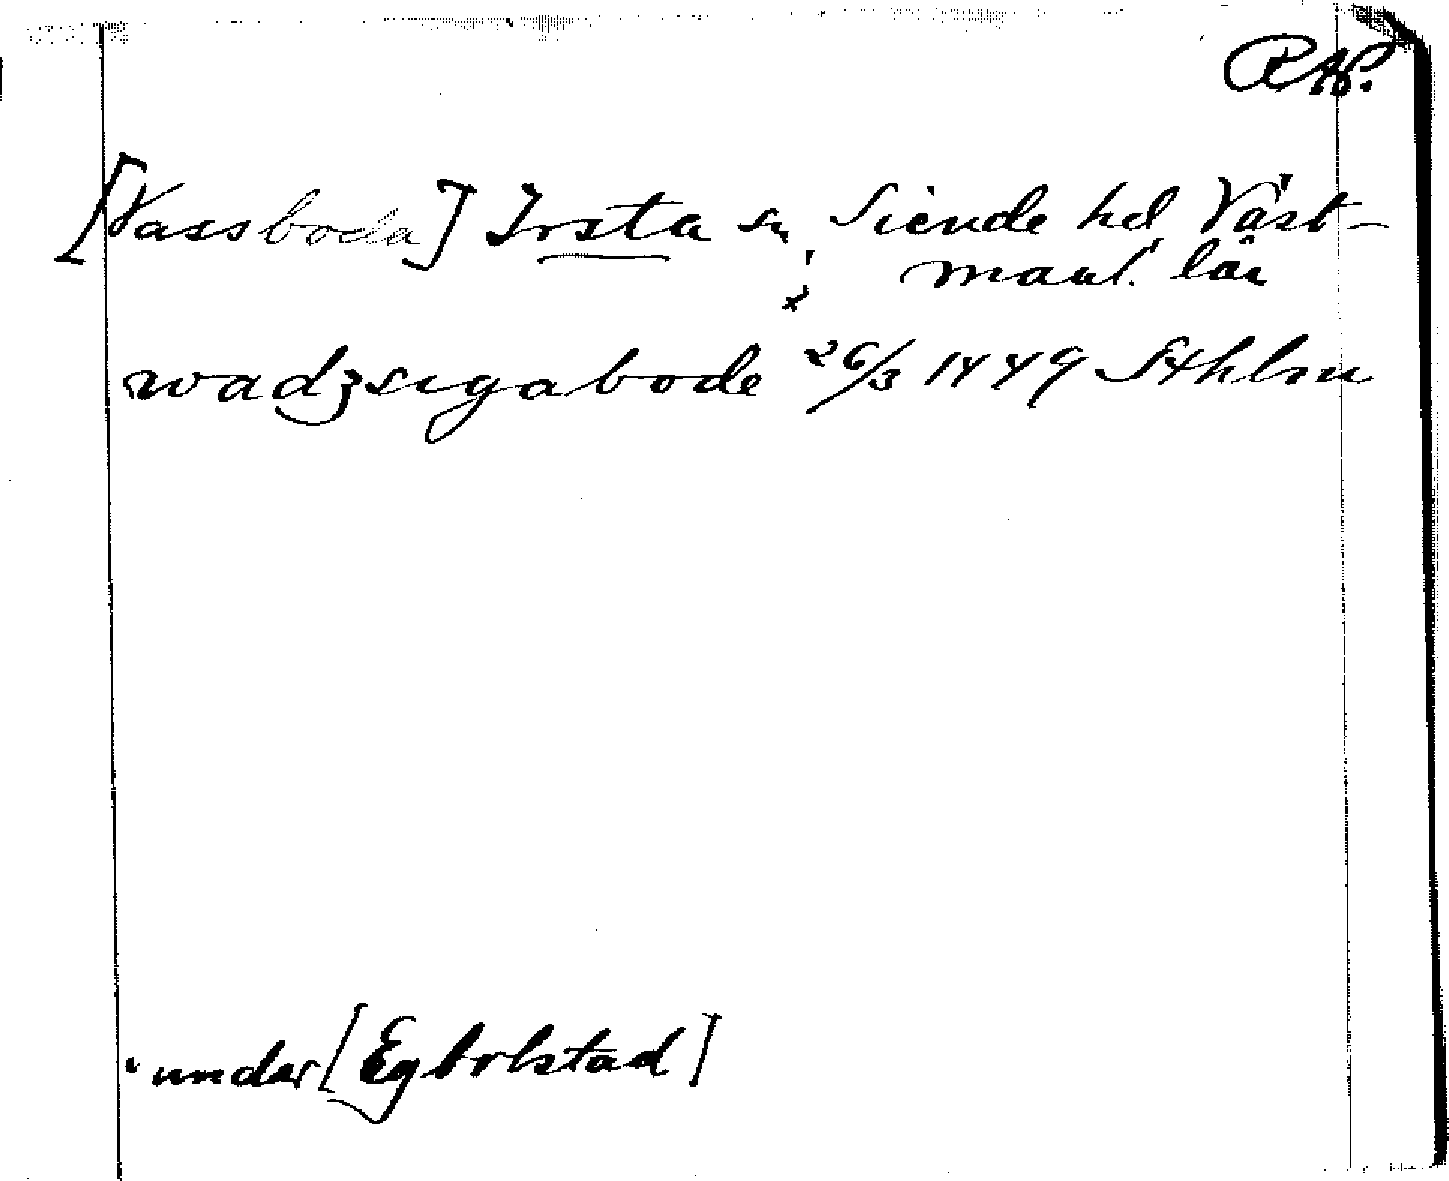 RAP.
[Vassboda] Irsta sn, Siende hd Väst-
manl. län
x
wadzsigabode 26/3 1449 Sthlm
under [Egbolstad]